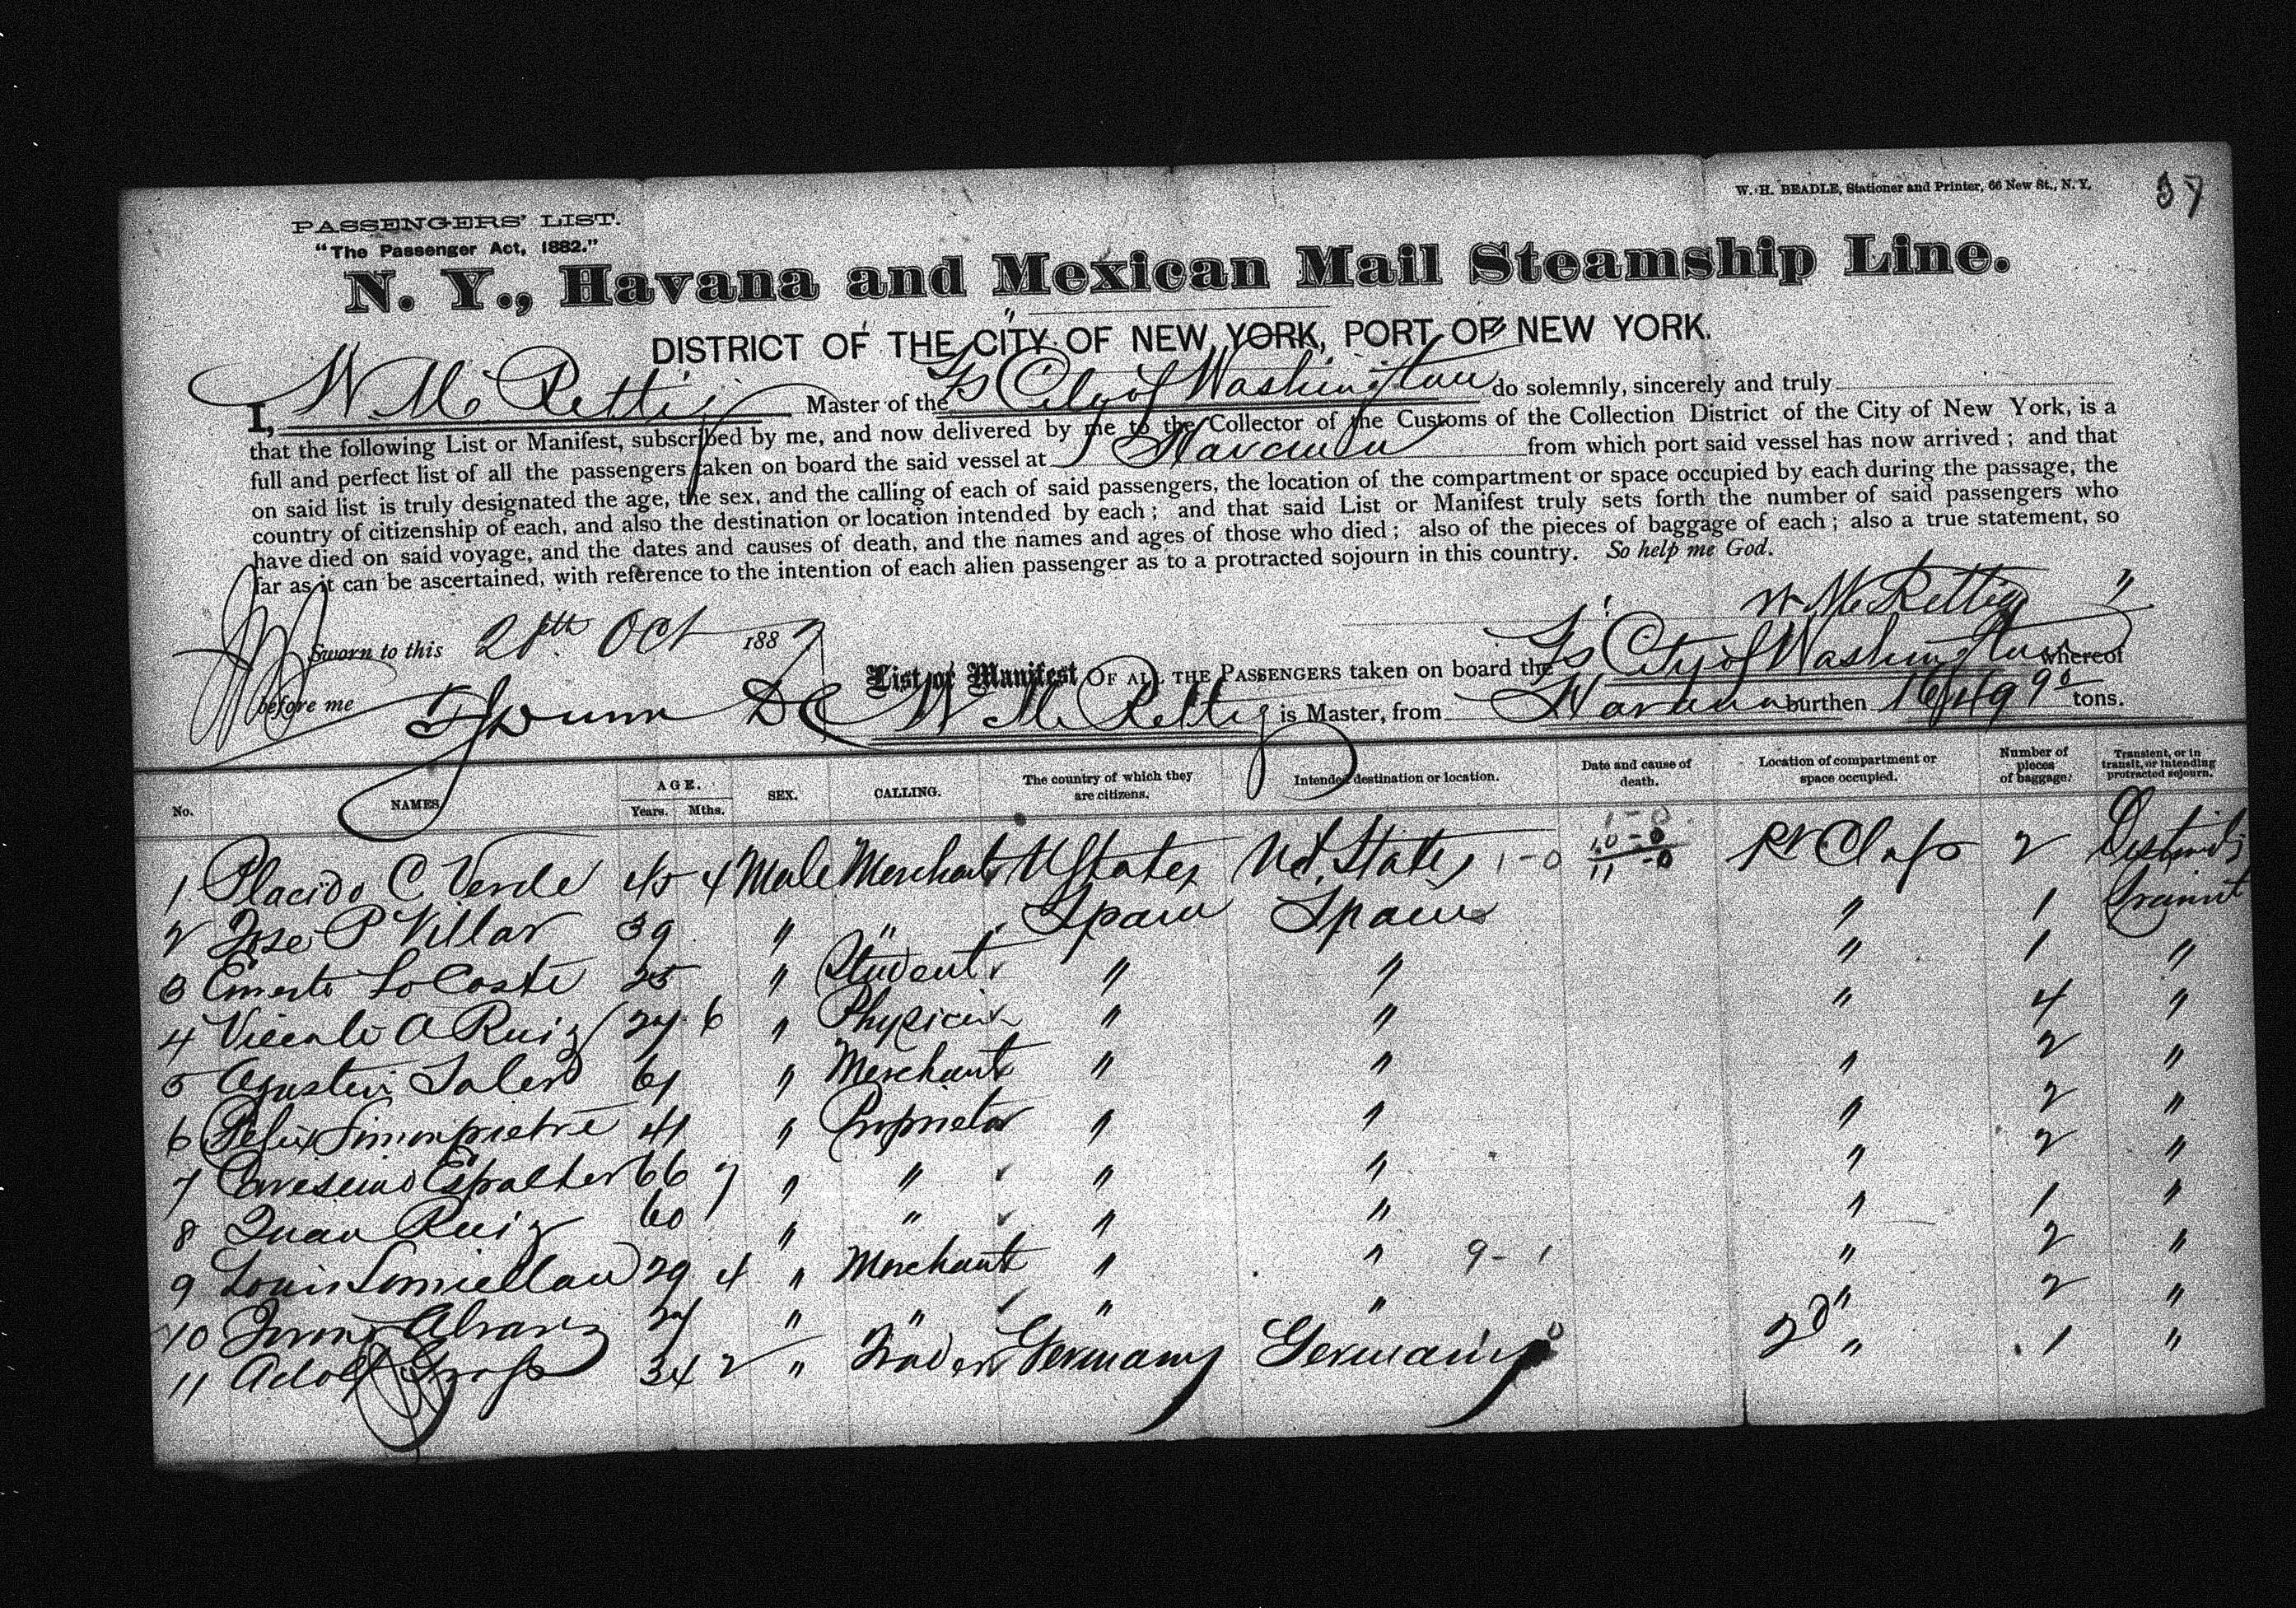 W. H. BEADLE, Stationer and Printer, 66 New St., N. Y.
PASSENGERS' LIST.
"The Passenger Act, 1882."
N. Y., Havana and Mexican Mail Steamship Line.
DISTRICT OF THE CITY OF NEW YORK, PORT OF NEW YORK.
I, W M Rettig Master of the Ss City of Washington do solemnly, sincerely and truly
that the following List or Manifest, subscribed by me, and now delivered by me to the Collector of the Customs of the Collection District of the City of New York, is a
full and perfect list of all the passengers taken on board the said vessel at Havana from which port said vessel has now arrived; and that
on said list is truly designated the age, the sex, and the calling of each of said passengers, the location of the compartment or space occupied by each during the passage, the
country of citizenship of each, and also the destination or location intended by each; and that said List or Manifest truly sets forth the number of said passengers who
have died on said voyage, and the dates and causes of death, and the names and ages of those who died; also of the pieces of baggage of each; also a true statement, so
far as it can be ascertained, with reference to the intention of each alien passenger as to a protracted sojourn in this country. So help me God.
W M Rettig
Sworn to this Oct 188
before me
List or Manifest OF ALL THE PASSENGERS taken on board the Ss City of Washington whereof
W M Rettig is Master, from Havana burthen tons.
No. NAMES AGE. Years. Mths. SEX. CALLING. The country of which they are citizens. Intended destination or location. Date and cause of death. Location of compartment or space occupied. Number of pieces of baggage. Transient, or in transit, or intending protracted sojourn.
1-0
10-0
11-0
1 Placido C. Verde 45 4 Male Merchant U States Ud. States 1-0 2
2 Jose P Villar 39 " " Spain Spain " 1 Transit
3 25 " Student " " " 1 "
4 Vicente A Ruiz 27 6 " Physician " " " 4 "
5 Agustin Soler 61 " Merchant " " " 2 "
6 Felix 41 " Proprietor " " " 2 "
7 66 7 " " " " " 2 "
8 Juan Ruiz 60 " " " " " 1 "
9 Louis 29 4 " Merchant " " 9-1 " 2 "
10 Alvarez 27 " " " " " 2 "
11 Adolf Gross 34 2 " Trader Germany Germany 2d " 1 "